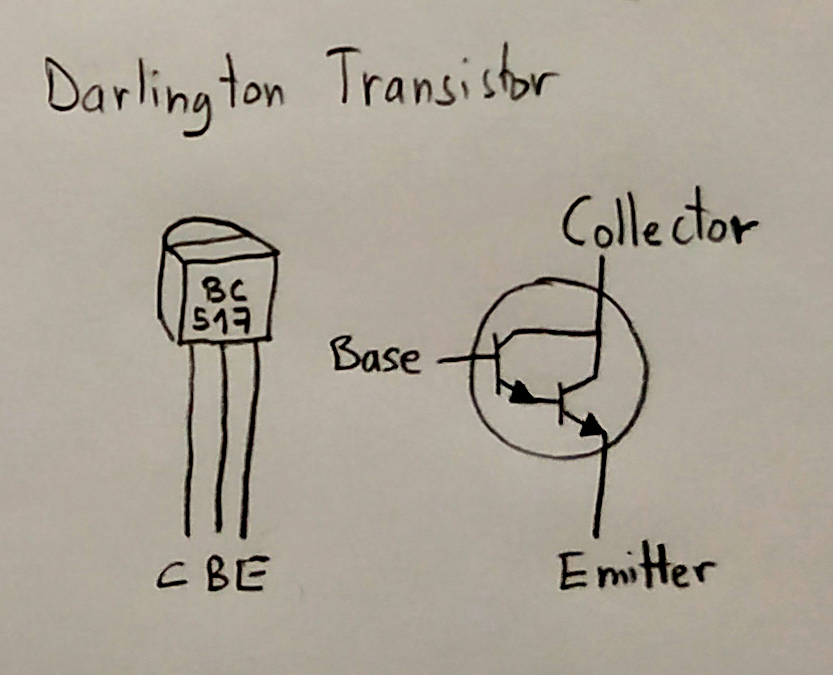 Darlington Transistor
BC
517
C B E
Collector
Base
Emitter